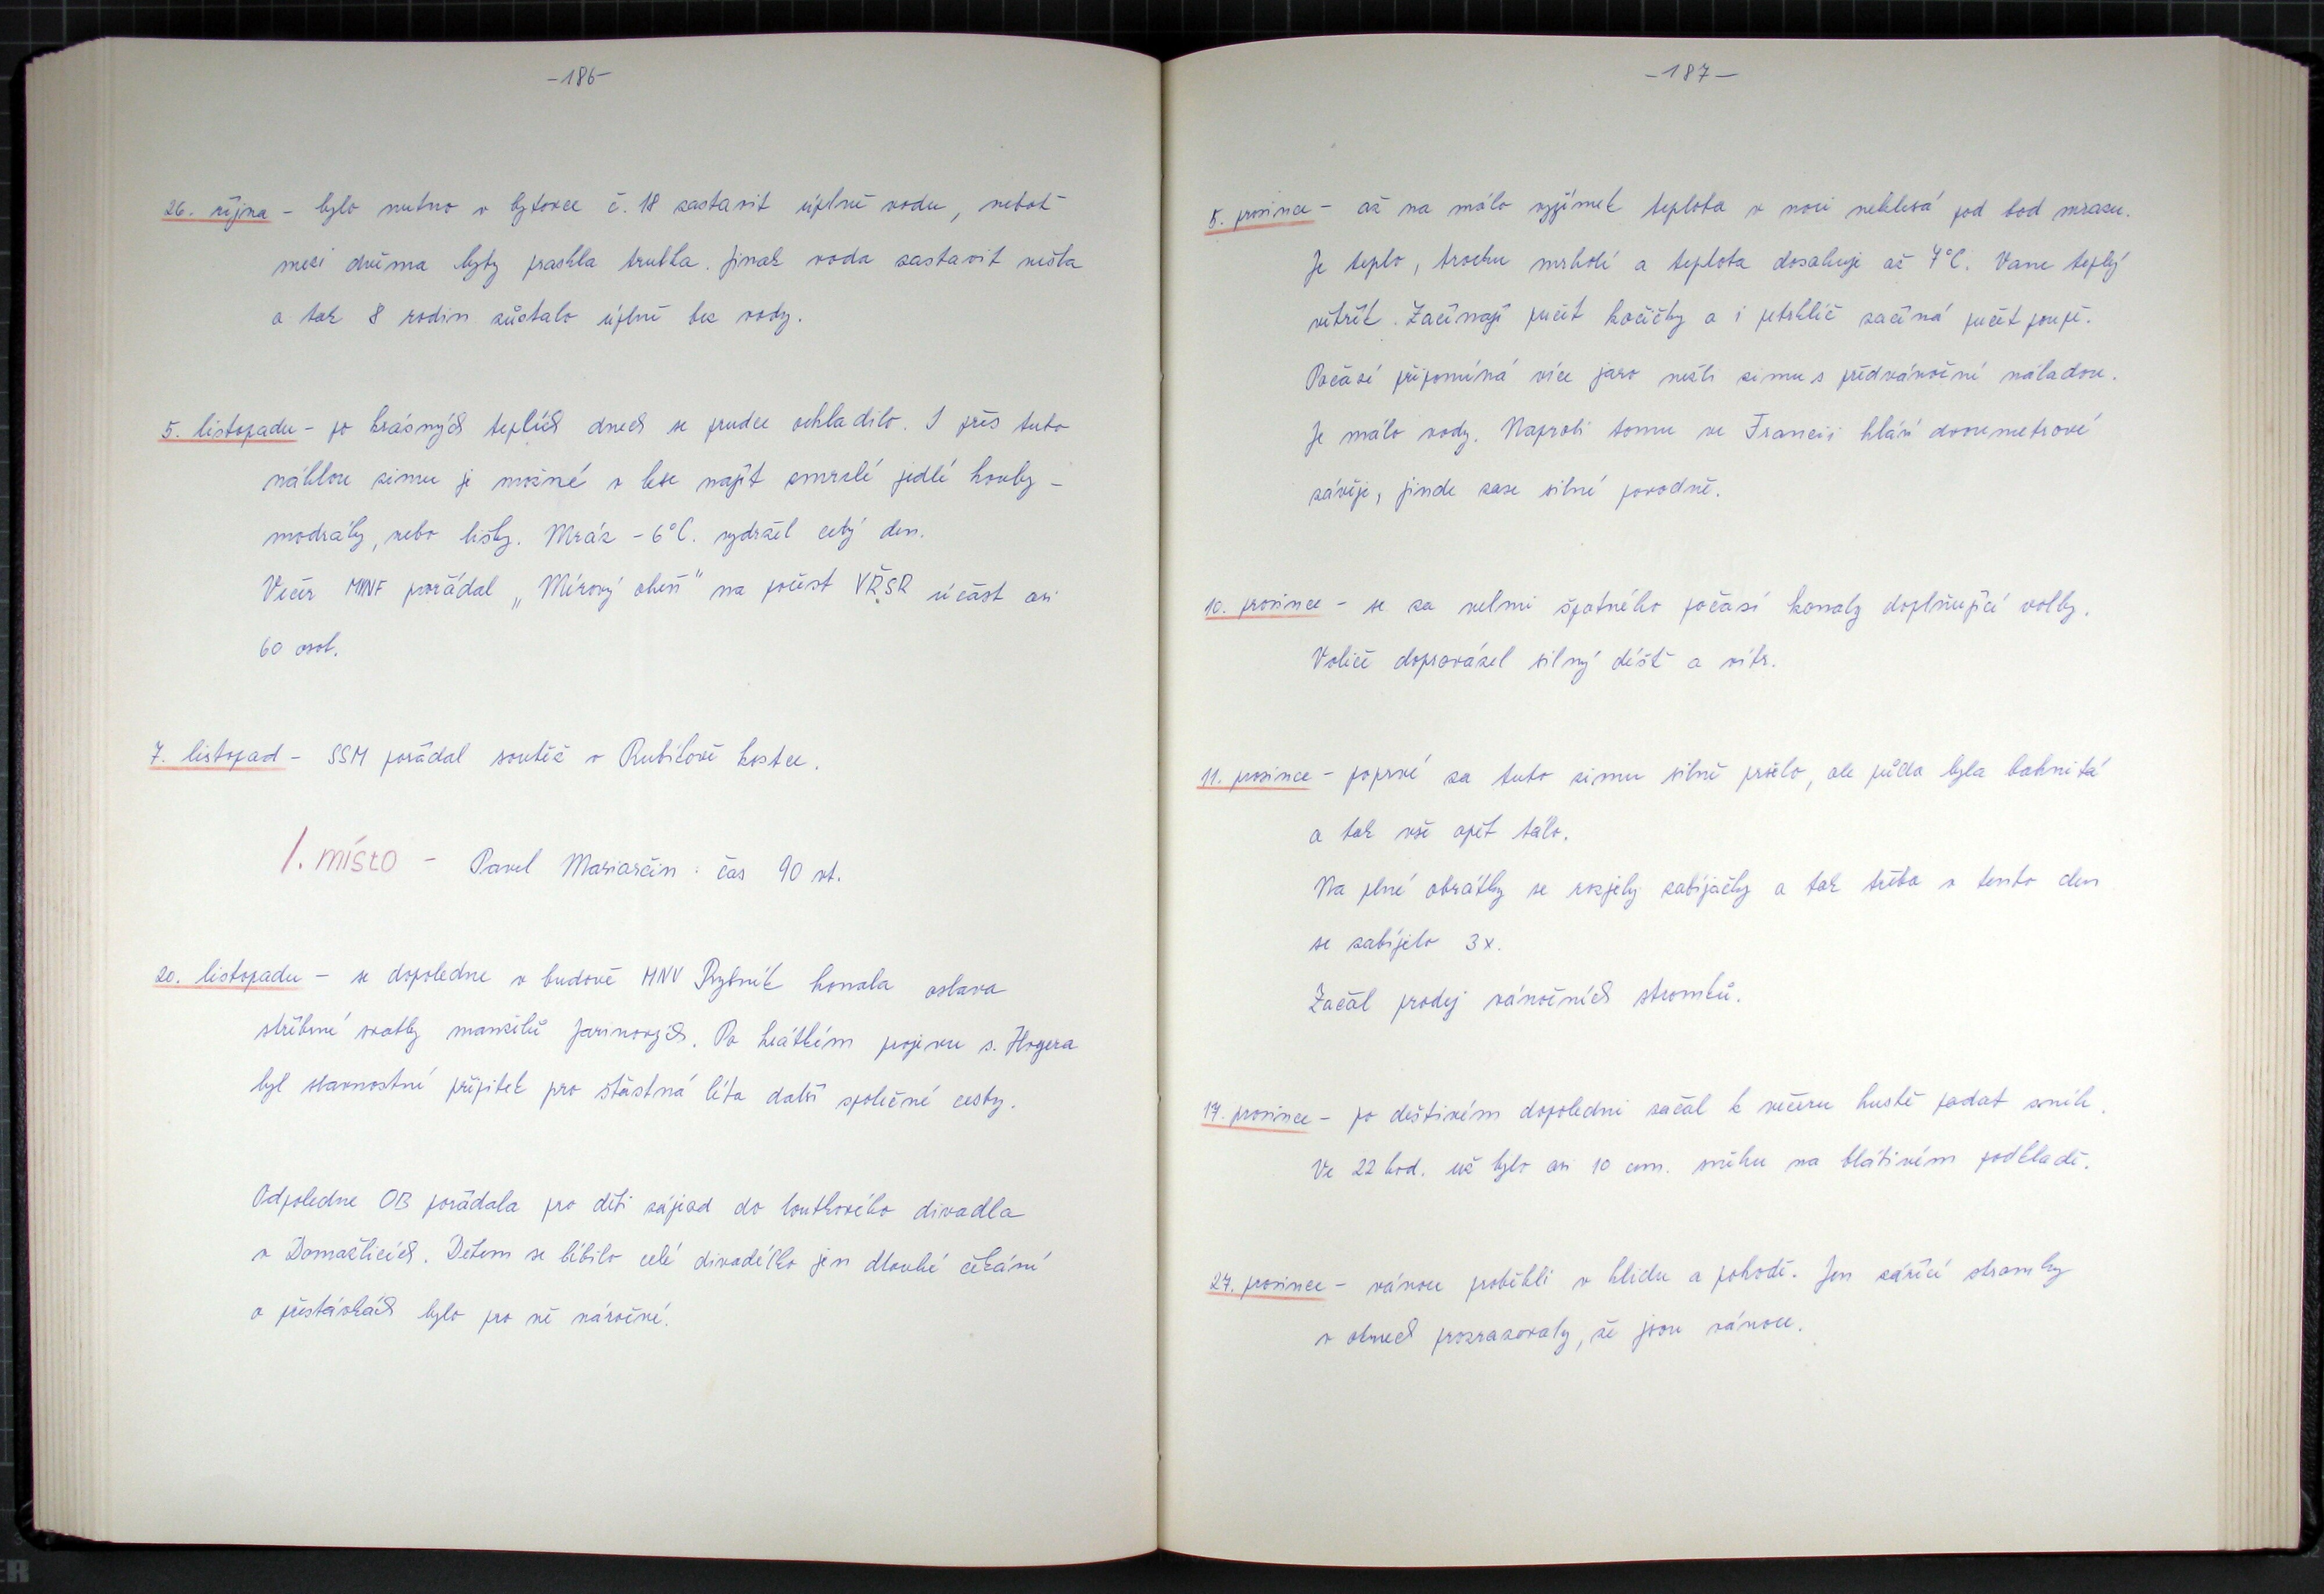 -186-
26. října - bylo nutno v bytovce č. 18 zastavit úplně vodu, neboť
mezi dvěma byty praskla trubka. Jinak voda zastavit nešla
a tak 8 rodin zůstalo úplně bez vody.
5. listopadu - po krásných teplých dnech se prudce ochladilo. I přes tuto
náhlou zimu je možné v lese najít zmrzlé jedlé houby -
modráky, nebo lišky. Mráz -6°C. vydržel celý den.
Večer MVNF pořádal „Mírový oheň" na počest VŘSR účast asi
60 osob.
7. listopad - SSM pořádal soutěž v Rubikově kostce.
1. místo - Pavel Mariarčin: čas 90 vt.
20. listopadu - se dopoledne v budově MNV Rybník konala oslava
stříbrné svatby manželů Jarinových. Po krátkém projevu s. Hogera
byl slavnostní přípitek pro šťastná léta další společné cesty.
Odpoledne OB pořádala pro děti zájezd do loutkového divadla
v Domažlicích. Dětem se líbilo celé divadélko jen dlouhé čekání
o přestávkách bylo pro ně náročné.
-187-
5. prosince - až na málo vyjímek teplota v noci neklesá pod bod mrazu.
Je teplo, trochu mrholí a teplota dosahuje až 7°C. Vane teplý
větřík. Začínají pučet kočičky a i petrklíč začíná pučet poupě.
Počasí připomíná více jaro nežli zimu s předvánoční náladou.
Je málo vody. Naproti tomu ve Francii hlásí dvoumetrové
závěje, jinde zase silné povodně.
10. prosince - se za velmi špatného počasí konaly doplňující volby.
Voliče doprovázel silný déšť a vítr.
11. prosince - poprvé za tuto zimu silně pršelo, ale půda byla bahnitá
a tak vše opět tálo.
Na plné obrátky se rozjely zabíjačky a tak třeba v tento den
se zabíjelo 3x.
Začal prodej vánočních stromků.
17. prosince - po deštivém dopoledni začal k večeru hustě padat sníh.
Ve 22 hod. už bylo asi 10 cm. sněhu na blátivém podkladě.
27. prosince - vánoce proběhli v klidu a pohodě. Jen zářící stromky
v oknech prozrazovaly, že jsou vánoce.